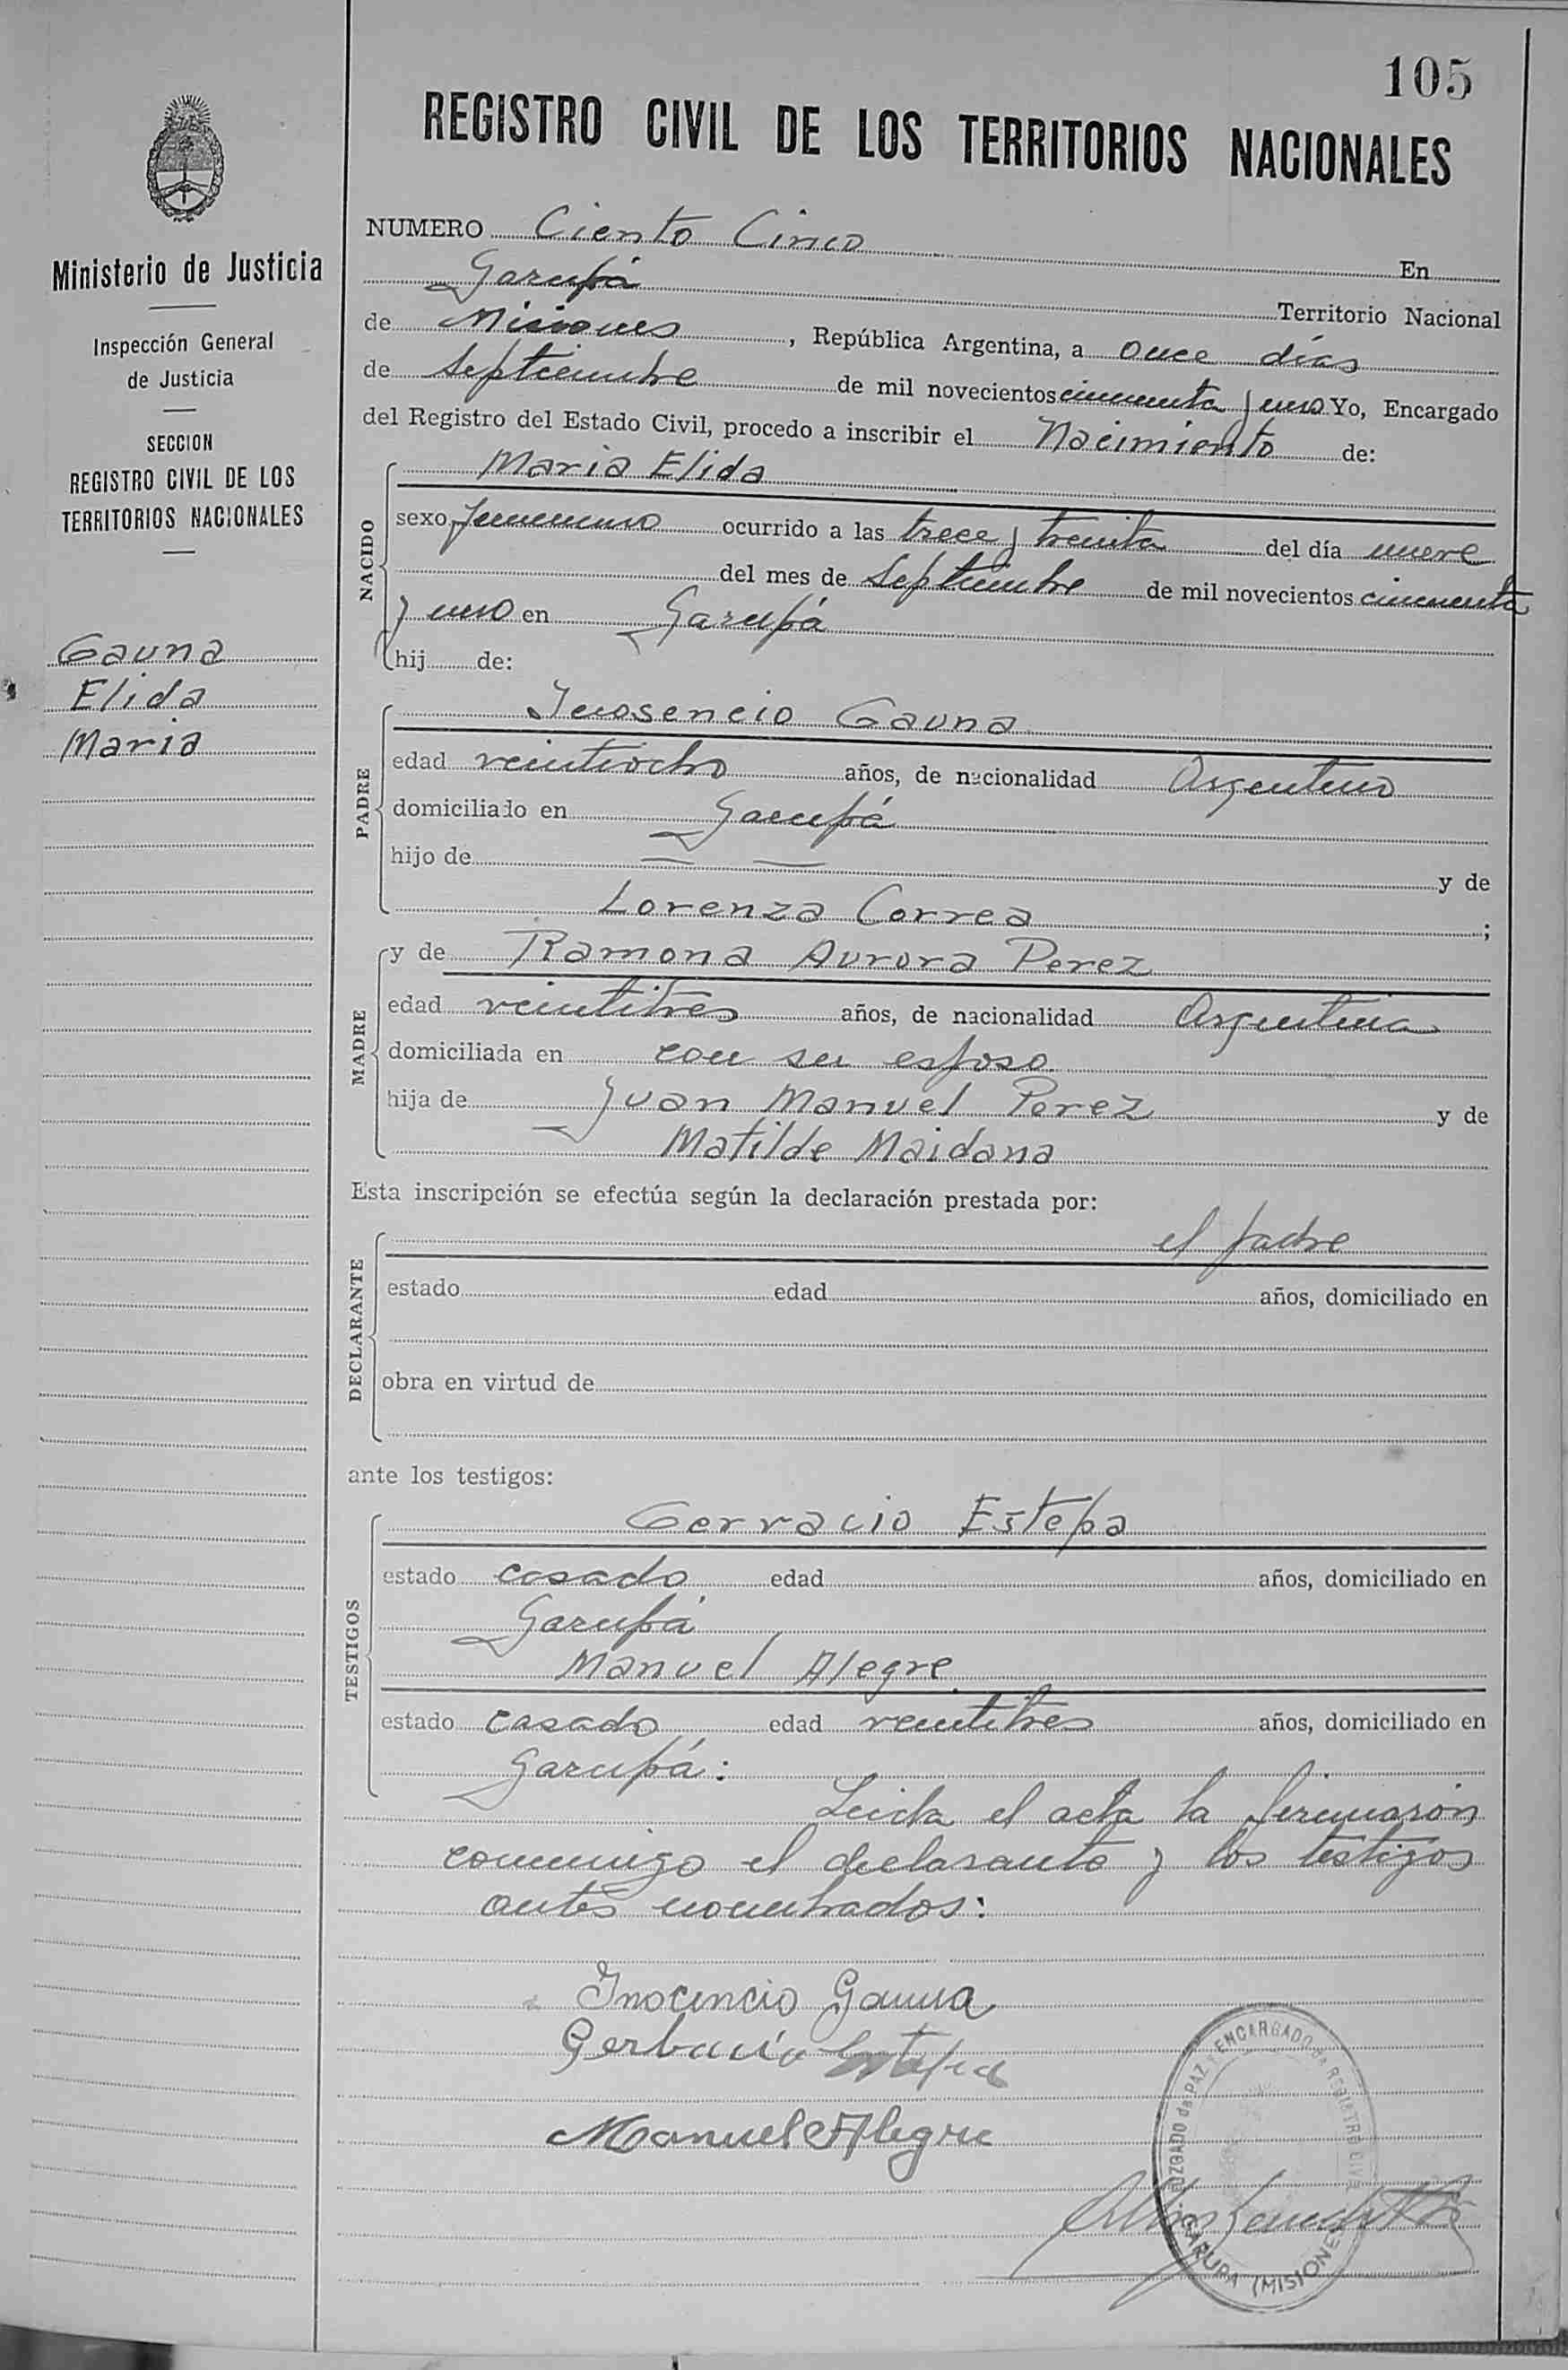 105
REGISTRO CIVIL DE LOS TERRITORIOS NACIONALES
Ministerio de Justicia
Inspección General
de Justicia
SECCION
REGISTRO CIVIL DE LOS
TERRITORIOS NACIONALES
Gauna
Elida
Maria
NUMERO Ciento Cinco En
Garupá Territorio Nacional
de Misiones, República Argentina, a once días
de Septiembre de mil novecientos cincuenta y uno Yo, Encargado
del Registro del Estado Civil, procedo a inscribir el Nacimiento de:
NACIDO
Maria Elida
sexo femenino ocurrido a las trece y treinta del día nueve
del mes de Septiembre de mil novecientos cincuenta
y uno en Garupá
hij de:
PADRE
Inosencio Gauna
edad veintiocho años, de nacionalidad Argentino
domiciliado en Garupá
hijo de — — y de
Lorenza Correa ;
MADRE
y de Ramona Aurora Perez
edad veintitres años, de nacionalidad Argentina
domiciliada en con su esposo
hija de Juan Manuel Perez y de
Matilde Maidana
Esta inscripción se efectúa según la declaración prestada por:
DECLARANTE
el padre
estado edad años, domiciliado en
obra en virtud de
ante los testigos:
TESTIGOS
Gervacio Estepa
estado casado edad años, domiciliado en
Garupá
Manuel Alegre
estado casado edad veintitres años, domiciliado en
Garupá:
Leida el acta la firmaron
conmigo el declarante y los testigos
antes nombrados:
Inocencio Gauna
Gerbacio Estepa
Manuel Alegre
JUZGADO de PAZ y ENCARGADO de REGISTRO CIVIL
GARUPA (MISIONES)